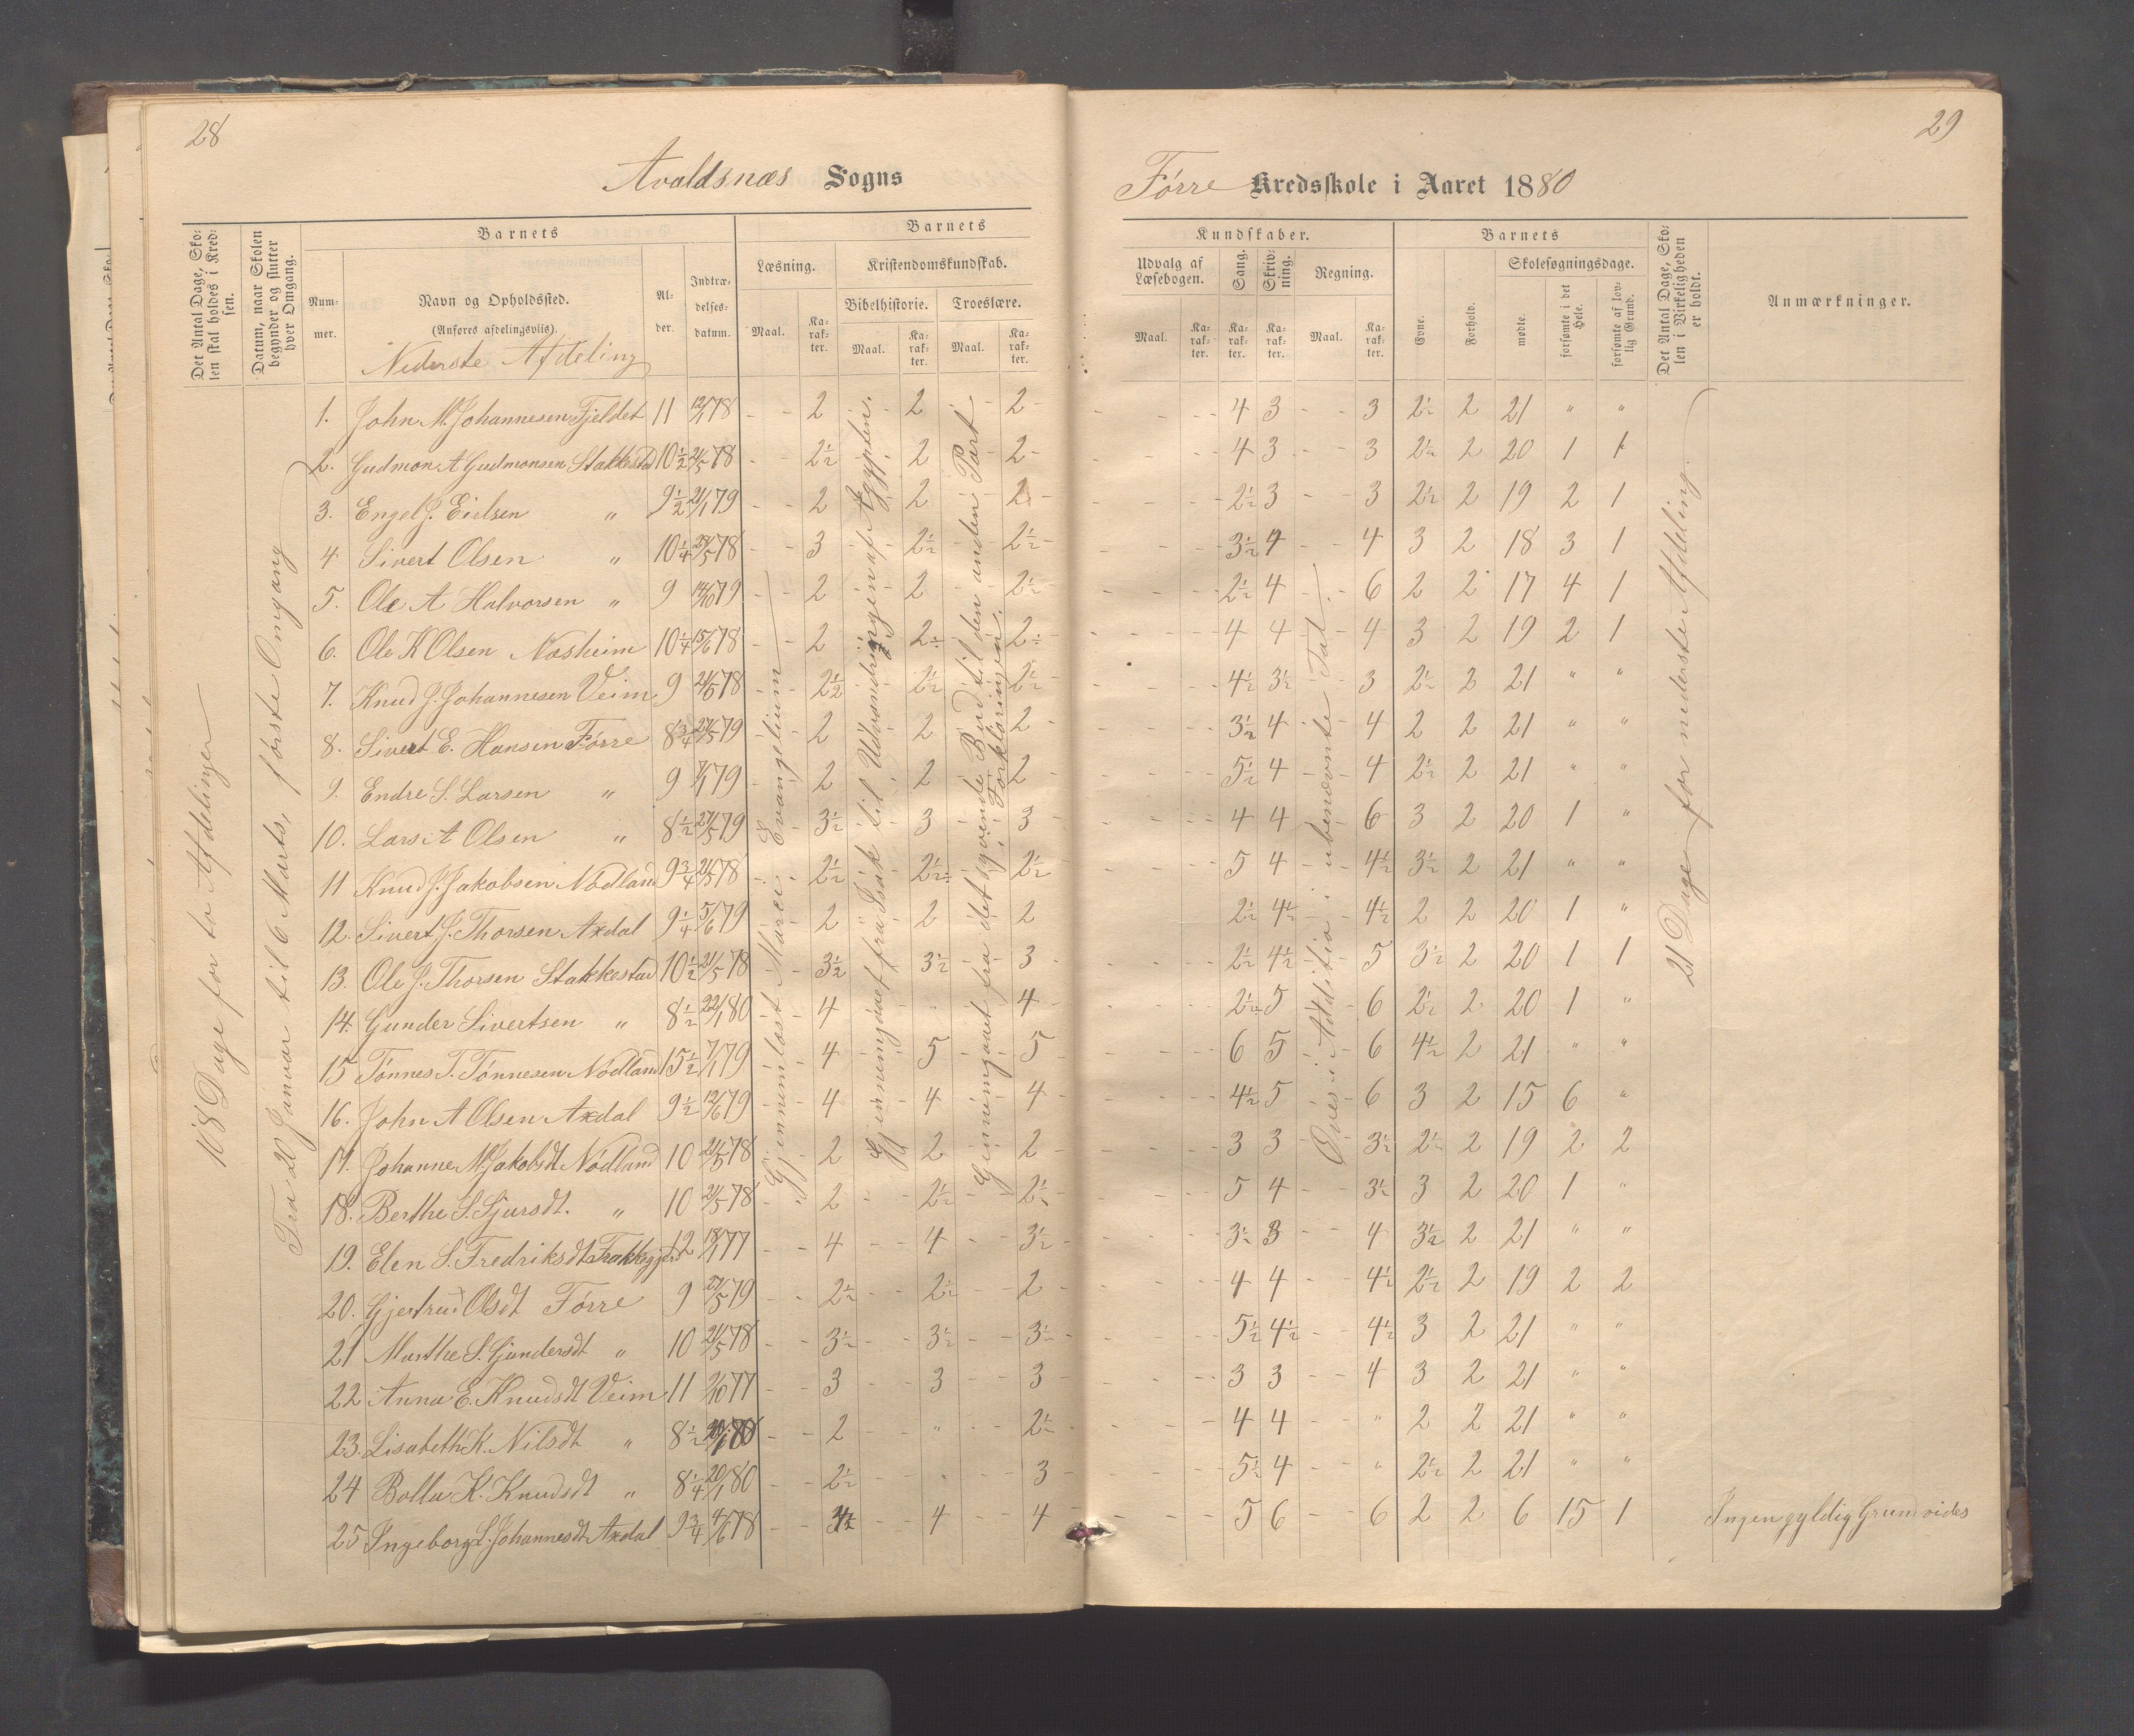 28
Avaldsnæs Sogns
Det Antal Dage, Sko-
len skal holdes i Kred-
sen.
Datum, naar Skolen
begynder og slutter
hver Omgang.
Barnets
Num-
mer.
Navn og Opholdssted.
(Anføres afdelingsviis).
Nederste Afdeling
Al-
der.
Indtræ-
delses-
datum.
Barnets
Læsning.
Maal.
Ka-
rak-
ter.
Kristendomskundskab.
Bibelhistorie.
Maal.
Ka-
rak-
ter.
Troeslære.
Maal.
Ka-
rak-
ter.
108 Dage for to Afdelinger
Fra 20 Januar til 6 Marts, første Omgang
Gjennemlæst Marci Evangelium
Gjennemgaaet fra Isak til Udvandringen af Ægypten.
Gjennemgaaet fra det syvende Bud til den anden Part
i Forklaringen.
1. John M. Johannesen Fjeldet 11 12/1 78 - - 2 - 2 - 2 -
2. Gudmon A Gudmonsen Stakkestad 10 1/2 21/5 78 - - 2 1/2 - 2 - 2 -
3. Engel J. Eielsen " 9 1/2 21/1 79 - - 2 - 2 - 2 -
4 Sivert Olsen " 10 1/4 78 - - 3 - 2 1/2 - 2 1/2 -
5. Ole A Halvorsen " 9 79 - - 2 - 2 - 2 1/2
6. Ole K Olsen Næsheim 10 1/4 15/6 78 - - 2 - 2 - 2
7. Knud J. Johannesen Veim 9 21/5 78 - - 2 1/2 - 2 1/2 - 2 1/2
8. Sivert E. Hansen Førre 8 3/4 27/5 79 - - 2 - 2 - 2 -
9. Endre S. Larsen " 9 7/1 79 - - 2 - 2 - 2
10. Lars A Olsen " 8 1/2 27/5 79 - - 3 1/2 - 3 - 3
11 Knud J. Jakobsen Nødland 9 3/4 21/5 78 - - 2 1/2 - 2 1/2 - 2 1/2
12. Sivert J. Thorsen Axdal 9 1/4 5/6 79 - - 2 - 2 - 2
13. Ole J. Thorsen Stakkestad 10 1/2 21/5 78 - - 3 1/2 - 3 1/2 - 3 -
14. Gunder Sivertsen " 8 1/2 22/1 80 - - 4 - - 4
15 Tønnes T. Tønnesen Nødland 15 1/2 7/1 79 - - 4 - 5 - 5
16. John A Olsen Axdal 9 1/2 12/6 79 - - 4 - 4 - 4
17. Johanne M. Jakobsdt Nødland 10 21/5 78 - - 2 - 2 - 2
18. Berthe S. Sjursdt. " 10 21/5 78 - - 2 - 2 1/2 - 2 1/2
19. Elen S. Fredriksdt 12 18/1 77 - - 4 - 4 - 3 1/2
20. Gjertrud Olsdt Førre 9 27/5 79 - - 2 1/2 - 2 1/2 - 2
21 Marthe S. Gundersdt " 10 21/5 78 - - 3 1/2 - 3 1/2 - 3 1/2
22 Anna E. Knudsdt Veim 11 2/10 77 - - 3 - 3 - 3
23. Lisabeth K. Nilsdt " 8 1/2 80 - - 2 - " - 2 1/2
24 Bolla K. Knudsdt " 8 1/4 20/1 80 - - 2 1/2 - " - 3
25 Ingeborg L. Johannesdt Axdal 9 3/4 4/6 78 - - - 4 - 4
29
Førre Kredsskole i Aaret 1880
Kundskaber.
Udvalg af
Læsebogen.
Maal.
Ka-
rak-
ter.
Sang.
Ka-
rak-
ter.
Skriv-
ning.
Ka-
rak-
ter.
Regning.
Maal.
Ka-
rak-
ter.
Barnets
Evne.
Forhold.
Skolesøgningsdage.
mødte.
forsømte i det
Hele.
forsømte af lov-
lig Grund.
Det Antal Dage, Sko-
len i Virkeligheden
er holdt.
Anmærkninger.
Øves i Addition i ubenævnte Tal
21 Dage for nederste Afdeling.
4 3 - 3 2 1/2 2 21 " "
4 3 - 3 2 1/2 2 20 1 1
2 1/2 3 - 3 2 1/2 2 19 2 1
3 1/2 4 - 4 3 2 18 3 1
2 1/2 4 - 6 2 2 17 4 1
4 4 - 4 3 2 19 2 1
4 1/2 3 1/2 - 3 2 1/2 2 21 " "
3 1/2 4 - 4 2 2 21 " "
5 1/2 4 - 4 2 1/2 2 21 " "
4 4 - 6 3 2 20 1 "
5 4 - 4 1/2 3 1/2 2 21 " "
2 1/2 4 1/2 - 4 1/2 2 2 20 1 "
2 1/2 4 1/2 - 5 3 1/2 2 20 1 1
2 1/2 5 - 6 2 1/2 2 20 1 "
6 5 - 6 4 1/2 2 21 " "
4 1/2 5 - 6 3 2 15 6 "
3 3 - 3 1/2 2 1/2 2 19 2 2
5 4 - 3 1/2 3 2 20 1 "
3 1/2 3 - 4 3 1/2 2 21 " "
4 4 - 4 1/2 2 1/2 2 19 2 2
5 1/2 4 1/2 - 4 1/2 3 2 21 " "
3 3 - 4 3 2 21 " "
4 4 - " 2 2 21 " "
5 1/2 4 - " 2 1/2 2 21 " "
5 6 - 6 2 2 6 15 1 Ingen gyldig Grund vides